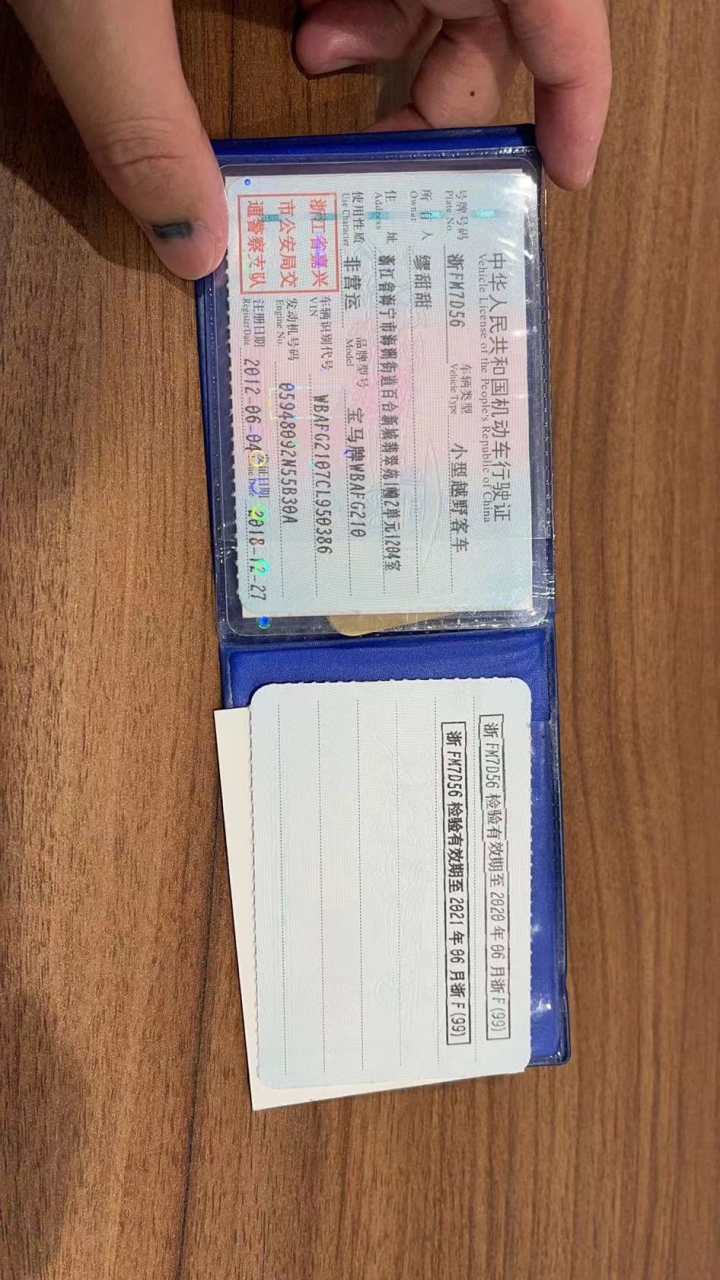 中华人民共和国机动车行驶证
Vehicle License of the People's Republic of China
号牌号码 浙FM7D56 车辆类型 小型越野客车
Plate No. Vehicle Type
所有人 缪甜甜
Owner
住址 浙江省海宁市海洲街道百合新城翡翠苑1幢2单元1204室
Address
使用性质 非营运 品牌型号 宝马牌WBAFG210
Use Character Model
浙江省嘉兴
市公安局交
通警察支队
车辆识别代号 WBAFG2107CL950386
VIN
发动机号码 05948092N55B30A
Engine No.
注册日期 2012-06-04 发证日期 2018-12-27
Register Date Issue Date
浙FM7D56 检验有效期至 2020 年 06 月浙F(99)
浙FM7D56 检验有效期至 2021 年 06 月浙F(99)